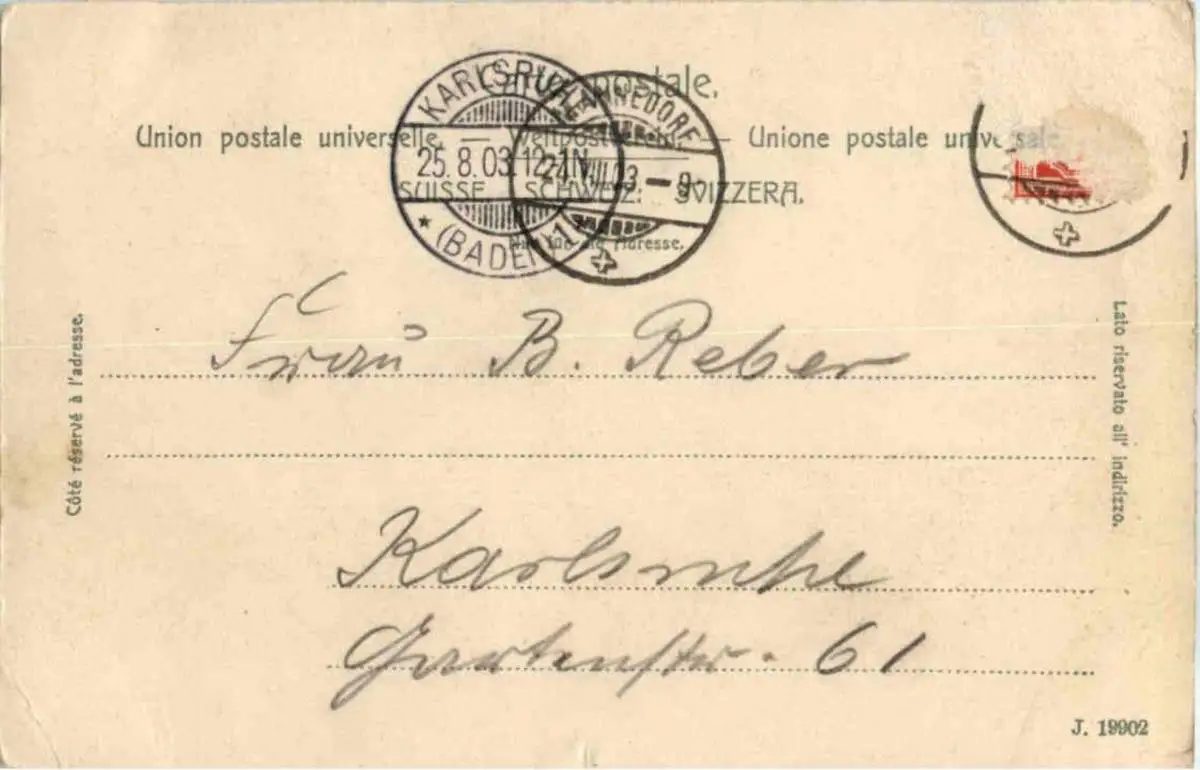 Carte postale.
Union postale universelle. — Weltpostverein. — Unione postale universale.
SUISSE. SCHWEIZ. SVIZZERA.
Nur für die Adresse.
KARLSRUHE
25. 8. 03. 12-1N
* (BADEN) 1.
MÆNNEDORF
24. VIII. 03 – 9
Côté réservé à l'adresse.
Lato riservato all' indirizzo.
Frau B. Reber
Karlsruhe
Gartenstr. 61
J. 19902